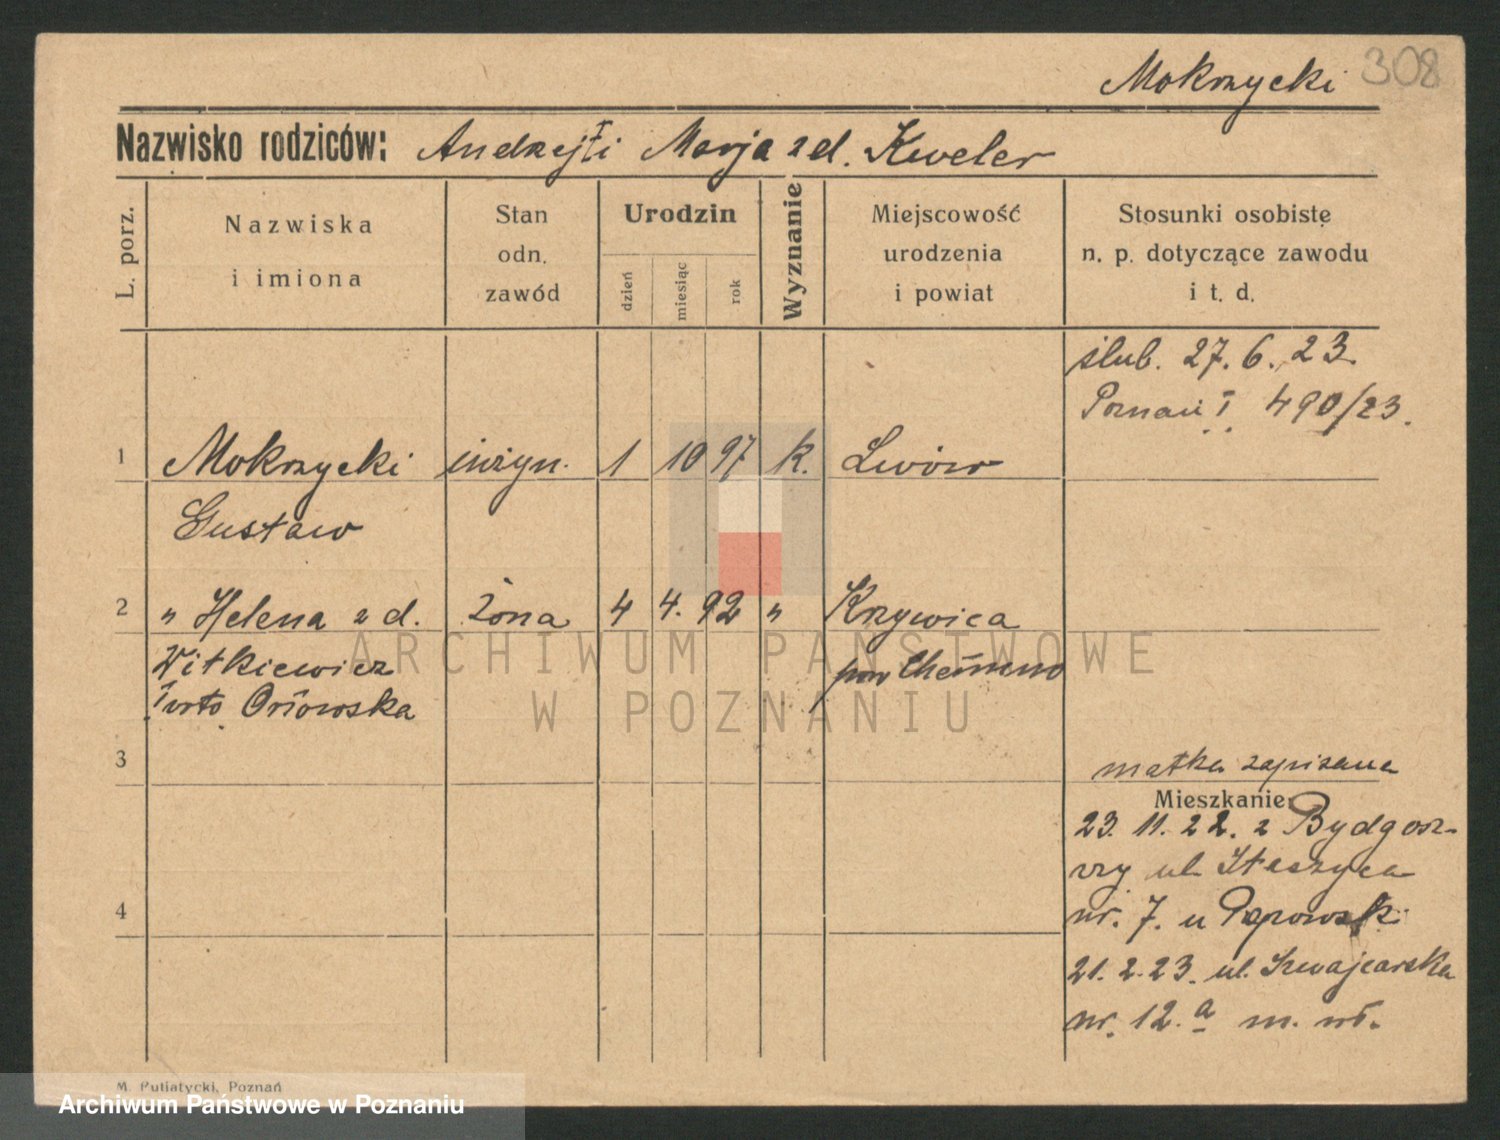 Mokrzycki 308
Nazwisko rodziców: Andrzej † i Marja z d. Kweler
L. porz.
Nazwiska
i imiona
Stan
odn.
zawód
Urodzin
dzień
miesiąc
rok
Wyznanie
Miejscowość
urodzenia
i powiat
Stosunki osobiste
n. p. dotyczące zawodu
i t. d.
ślub. 27. 6. 23.
Poznań I 490/23.
1 Mokrzycki inżyn. 1 10 97 k. Lwów
Gustaw
2 „ Helena z d. żona 4 4. 92 „ Krzywica
Witkiewicz pow
Orłowska
3
matka zapisana
Mieszkanie:
23. 11. 22. z Bydgosz-
czy ul. Staszyca
nr. 7. u Papowsk.
21. 2. 23. ul. Szwajcarska
nr. 12. a m. wł.
4
M. Putiatycki, Poznań
ARCHIWUM PAŃSTWOWE
W POZNANIU
Archiwum Państwowe w Poznaniu